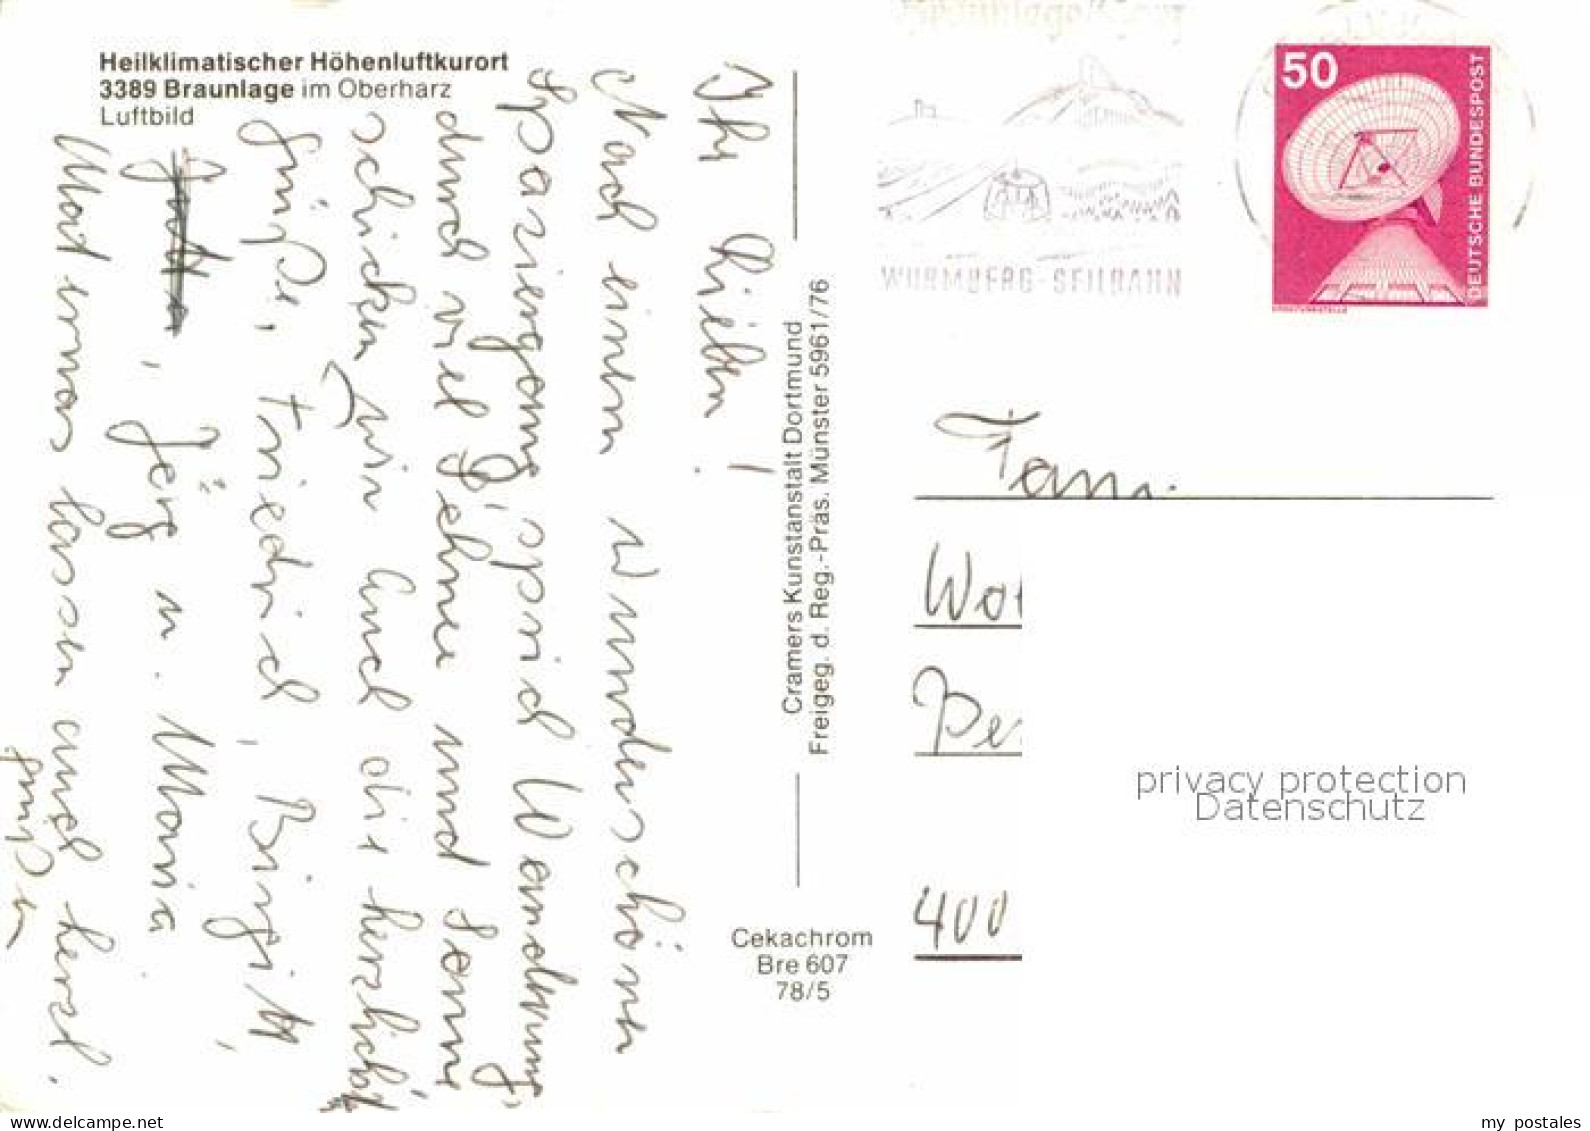 Heilklimatischer Höhenluftkurort
3389 Braunlage im Oberharz
Luftbild
Ihr Lieben!
Nach einem wunderschönen
Spaziergang, sprich Wanderung,
durch viel Schnee und Sonne
schicken wir Euch die herzlichsten
Grüße, Friedrich, Birgitt,
Jörg u. Maria
Mat
lassen auch herzl.
grüßen
Cramers Kunstanstalt Dortmund
Freigeg. d. Reg.-Präs. Münster 5961/76
Cekachrom
Bre 607
78/5
WURMBERG-SEILBAHN
50
DEUTSCHE BUNDESPOST
ERDEFUNKSTELLE
Fam.
Wo
Be
400
privacy protection
Datenschutz
my postales